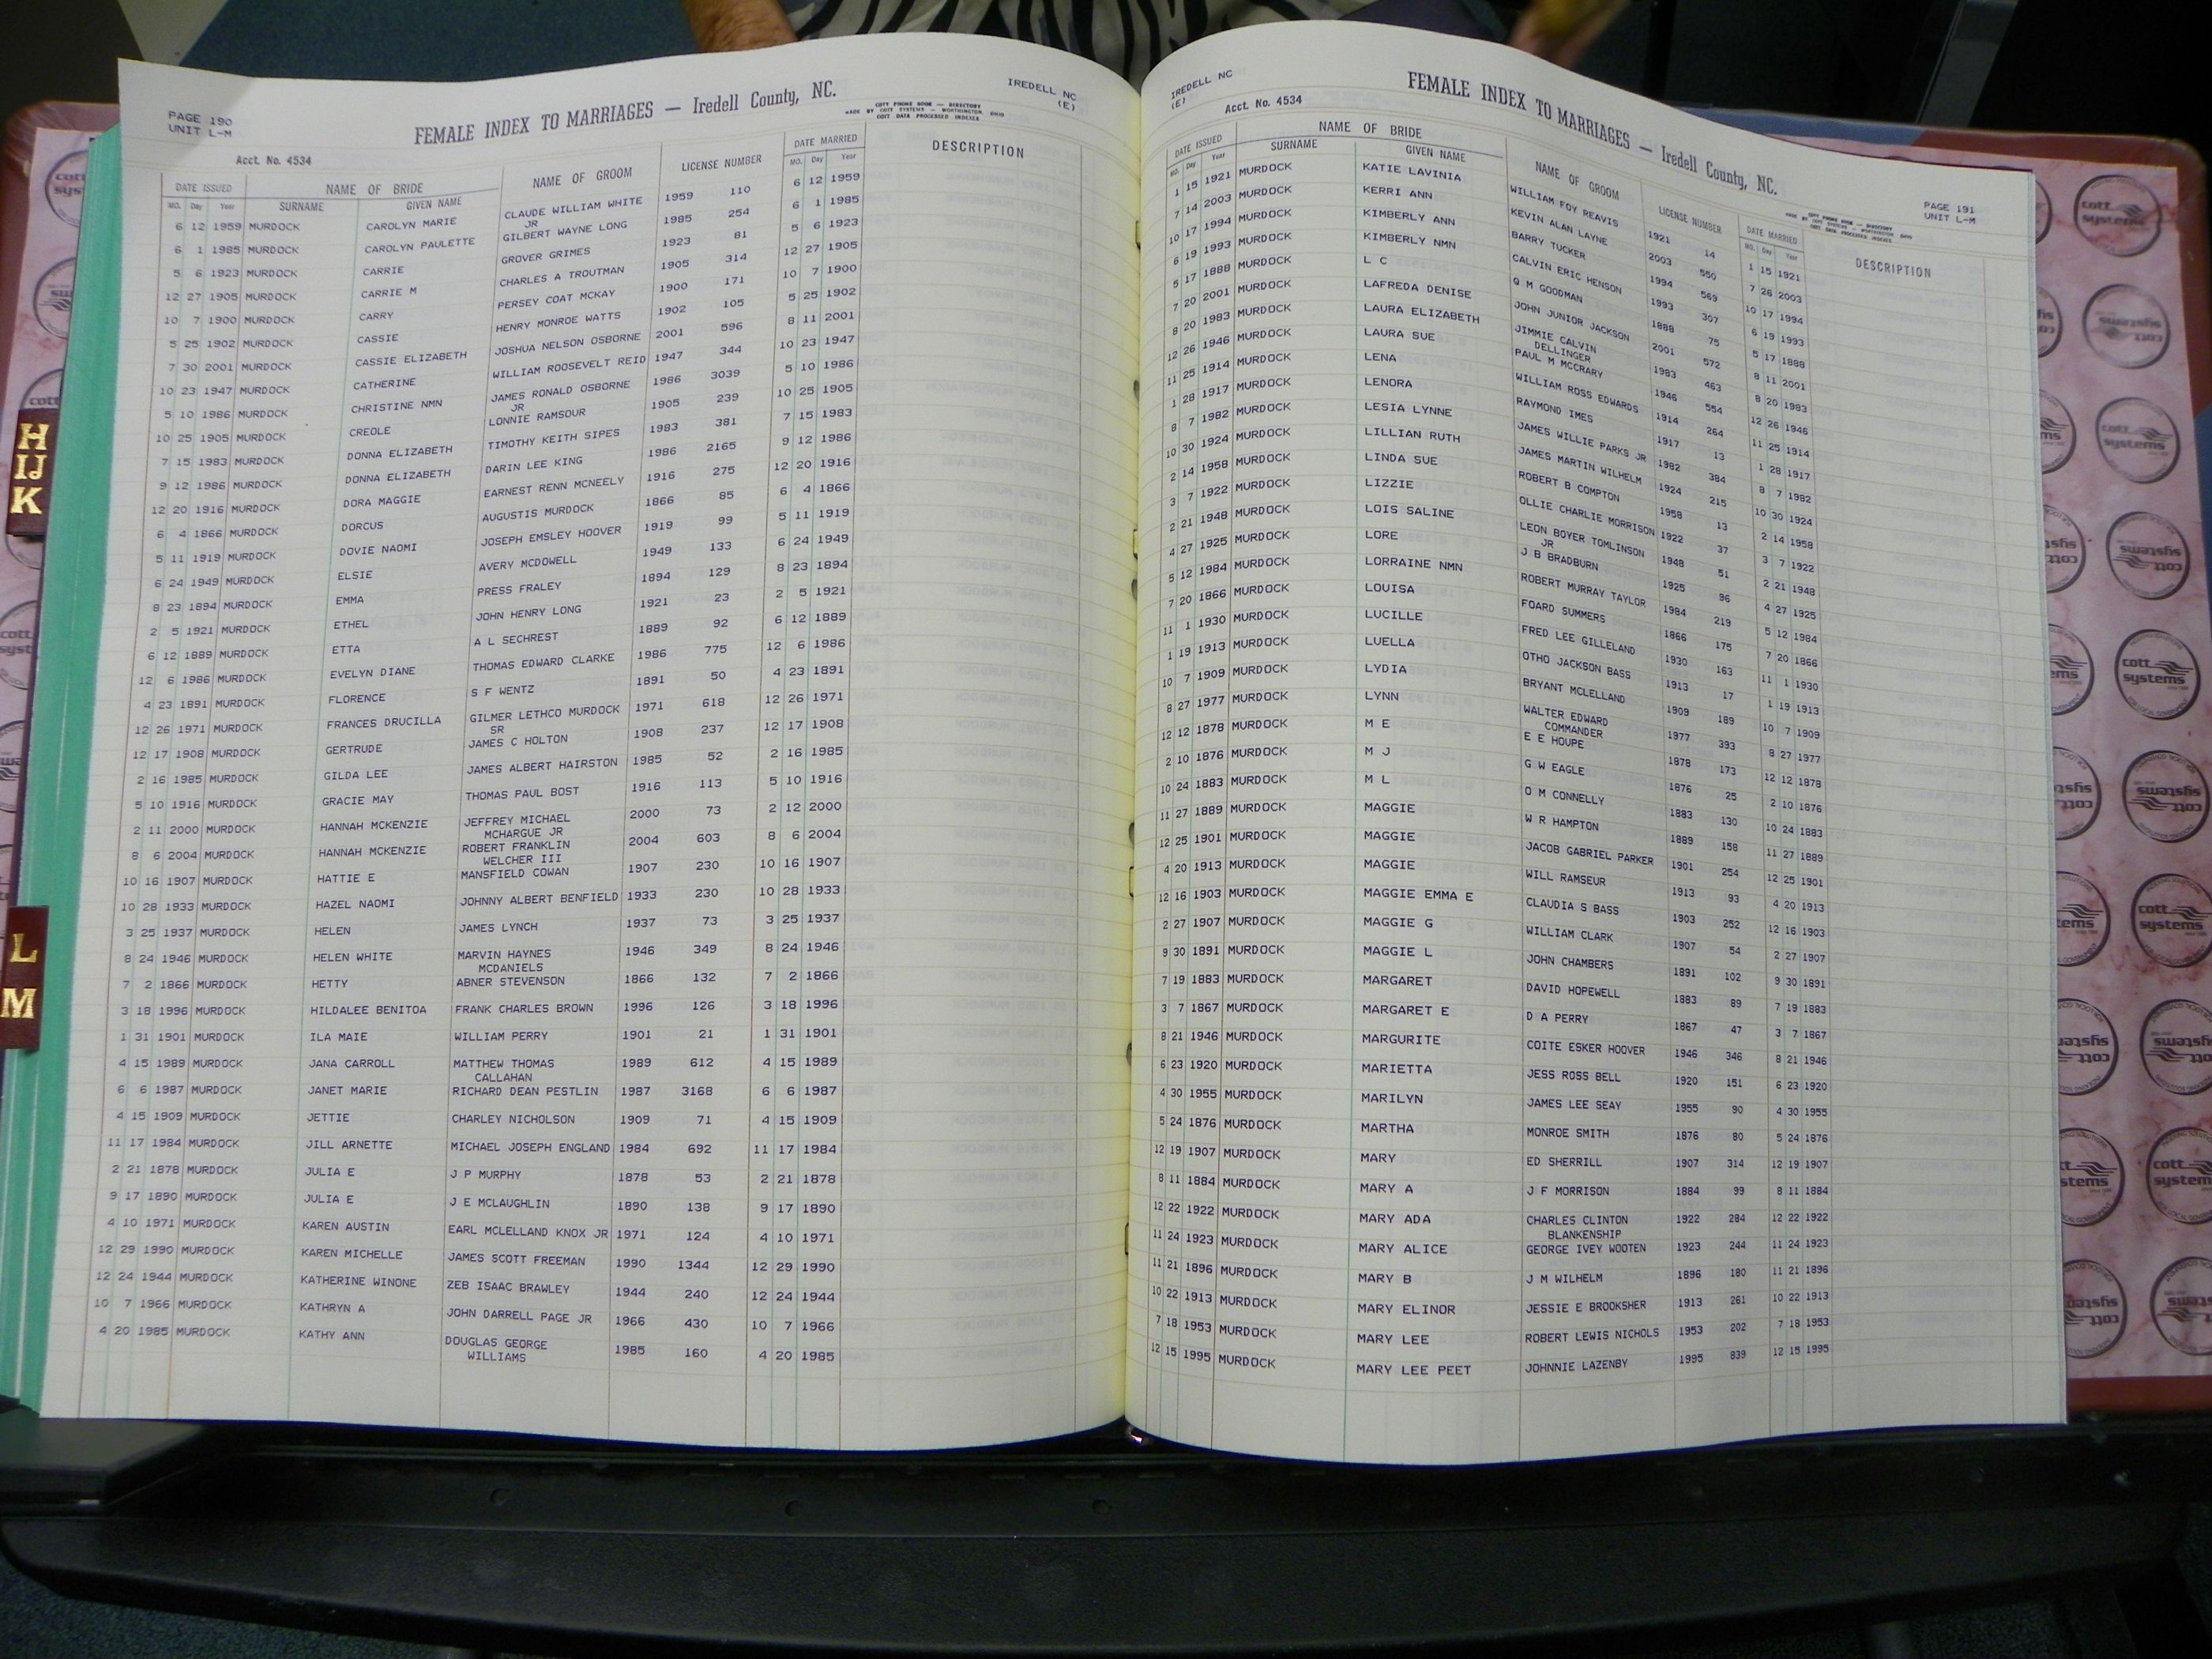 PAGE 190
UNIT L-M
FEMALE INDEX TO MARRIAGES — Iredell County, NC.
IREDELL NC
(E)
COTT PHONE BOOK — DIRECTORY
MADE BY COTT SYSTEMS — WORTHINGTON, OHIO
COTT DATA PROCESSED INDEXES
Acct. No. 4534
DATE ISSUED NAME OF BRIDE NAME OF GROOM LICENSE NUMBER DATE MARRIED DESCRIPTION
MO. Day Year SURNAME GIVEN NAME MO. Day Year
6 12 1959 MURDOCK CAROLYN MARIE CLAUDE WILLIAM WHITE 1959 110 6 12 1959
JR
6 1 1985 MURDOCK CAROLYN PAULETTE GILBERT WAYNE LONG 1985 254 6 1 1985
5 6 1923 MURDOCK CARRIE GROVER GRIMES 1923 81 5 6 1923
12 27 1905 MURDOCK CARRIE M CHARLES A TROUTMAN 1905 314 12 27 1905
10 7 1900 MURDOCK CARRY PERSEY COAT MCKAY 1900 171 10 7 1900
5 25 1902 MURDOCK CASSIE HENRY MONROE WATTS 1902 105 5 25 1902
7 30 2001 MURDOCK CASSIE ELIZABETH JOSHUA NELSON OSBORNE 2001 596 8 11 2001
10 23 1947 MURDOCK CATHERINE WILLIAM ROOSEVELT REID 1947 344 10 23 1947
5 10 1986 MURDOCK CHRISTINE NMN JAMES RONALD OSBORNE 1986 3039 5 10 1986
JR
10 25 1905 MURDOCK CREOLE LONNIE RAMSOUR 1905 239 10 25 1905
7 15 1983 MURDOCK DONNA ELIZABETH TIMOTHY KEITH SIPES 1983 381 7 15 1983
9 12 1986 MURDOCK DONNA ELIZABETH DARIN LEE KING 1986 2165 9 12 1986
12 20 1916 MURDOCK DORA MAGGIE EARNEST RENN MCNEELY 1916 275 12 20 1916
6 4 1866 MURDOCK DORCUS AUGUSTIS MURDOCK 1866 85 6 4 1866
5 11 1919 MURDOCK DOVIE NAOMI JOSEPH EMSLEY HOOVER 1919 99 5 11 1919
6 24 1949 MURDOCK ELSIE AVERY MCDOWELL 1949 133 6 24 1949
8 23 1894 MURDOCK EMMA PRESS FRALEY 1894 129 8 23 1894
2 5 1921 MURDOCK ETHEL JOHN HENRY LONG 1921 23 2 5 1921
6 12 1889 MURDOCK ETTA A L SECHREST 1889 92 6 12 1889
12 6 1986 MURDOCK EVELYN DIANE THOMAS EDWARD CLARKE 1986 775 12 6 1986
4 23 1891 MURDOCK FLORENCE S F WENTZ 1891 50 4 23 1891
12 26 1971 MURDOCK FRANCES DRUCILLA GILMER LETHCO MURDOCK 1971 618 12 26 1971
SR
12 17 1908 MURDOCK GERTRUDE JAMES C HOLTON 1908 237 12 17 1908
2 16 1985 MURDOCK GILDA LEE JAMES ALBERT HAIRSTON 1985 52 2 16 1985
5 10 1916 MURDOCK GRACIE MAY THOMAS PAUL BOST 1916 113 5 10 1916
2 11 2000 MURDOCK HANNAH MCKENZIE JEFFREY MICHAEL 2000 73 2 12 2000
MCHARGUE JR
8 6 2004 MURDOCK HANNAH MCKENZIE ROBERT FRANKLIN 2004 603 8 6 2004
WELCHER III
10 16 1907 MURDOCK HATTIE E MANSFIELD COWAN 1907 230 10 16 1907
10 28 1933 MURDOCK HAZEL NAOMI JOHNNY ALBERT BENFIELD 1933 230 10 28 1933
3 25 1937 MURDOCK HELEN JAMES LYNCH 1937 73 3 25 1937
8 24 1946 MURDOCK HELEN WHITE MARVIN HAYNES 1946 349 8 24 1946
MCDANIELS
7 2 1866 MURDOCK HETTY ABNER STEVENSON 1866 132 7 2 1866
3 18 1996 MURDOCK HILDALEE BENITOA FRANK CHARLES BROWN 1996 126 3 18 1996
1 31 1901 MURDOCK ILA MAIE WILLIAM PERRY 1901 21 1 31 1901
4 15 1989 MURDOCK JANA CARROLL MATTHEW THOMAS 1989 612 4 15 1989
CALLAHAN
6 6 1987 MURDOCK JANET MARIE RICHARD DEAN PESTLIN 1987 3168 6 6 1987
4 15 1909 MURDOCK JETTIE CHARLEY NICHOLSON 1909 71 4 15 1909
11 17 1984 MURDOCK JILL ARNETTE MICHAEL JOSEPH ENGLAND 1984 692 11 17 1984
2 21 1878 MURDOCK JULIA E J P MURPHY 1878 53 2 21 1878
9 17 1890 MURDOCK JULIA E J E MCLAUGHLIN 1890 138 9 17 1890
4 10 1971 MURDOCK KAREN AUSTIN EARL MCLELLAND KNOX JR 1971 124 4 10 1971
12 29 1990 MURDOCK KAREN MICHELLE JAMES SCOTT FREEMAN 1990 1344 12 29 1990
12 24 1944 MURDOCK KATHERINE WINONE ZEB ISAAC BRAWLEY 1944 240 12 24 1944
10 7 1966 MURDOCK KATHRYN A JOHN DARRELL PAGE JR 1966 430 10 7 1966
4 20 1985 MURDOCK KATHY ANN DOUGLAS GEORGE 1985 160 4 20 1985
WILLIAMS
IREDELL NC
(E)
FEMALE INDEX TO MARRIAGES — Iredell County, NC.
PAGE 191
UNIT L-M
Acct. No. 4534
COTT PHONE BOOK — DIRECTORY
MADE BY COTT SYSTEMS — WORTHINGTON, OHIO
COTT DATA PROCESSED INDEXES
DATE ISSUED NAME OF BRIDE NAME OF GROOM LICENSE NUMBER DATE MARRIED DESCRIPTION
MO. Day Year SURNAME GIVEN NAME MO. Day Year
1 15 1921 MURDOCK KATIE LAVINIA WILLIAM FOY REAVIS 1921 14 1 15 1921
7 14 2003 MURDOCK KERRI ANN KEVIN ALAN LAYNE 2003 550 7 26 2003
10 17 1994 MURDOCK KIMBERLY ANN BARRY TUCKER 1994 569 10 17 1994
6 19 1993 MURDOCK KIMBERLY NMN CALVIN ERIC HENSON 1993 307 6 19 1993
5 17 1888 MURDOCK L C G M GOODMAN 1888 75 5 17 1888
7 20 2001 MURDOCK LAFREDA DENISE JOHN JUNIOR JACKSON 2001 572 8 11 2001
8 20 1983 MURDOCK LAURA ELIZABETH JIMMIE CALVIN 1983 463 8 20 1983
DELLINGER
12 26 1946 MURDOCK LAURA SUE PAUL M MCCRARY 1946 554 12 26 1946
11 25 1914 MURDOCK LENA WILLIAM ROSS EDWARDS 1914 264 11 25 1914
1 28 1917 MURDOCK LENORA RAYMOND IMES 1917 13 1 28 1917
8 7 1982 MURDOCK LESIA LYNNE JAMES WILLIE PARKS JR 1982 384 8 7 1982
10 30 1924 MURDOCK LILLIAN RUTH JAMES MARTIN WILHELM 1924 215 10 30 1924
2 14 1958 MURDOCK LINDA SUE ROBERT B COMPTON 1958 13 2 14 1958
3 7 1922 MURDOCK LIZZIE OLLIE CHARLIE MORRISON 1922 37 3 7 1922
2 21 1948 MURDOCK LOIS SALINE LEON BOYER TOMLINSON 1948 51 2 21 1948
JR
4 27 1925 MURDOCK LORE J B BRADBURN 1925 96 4 27 1925
5 12 1984 MURDOCK LORRAINE NMN ROBERT MURRAY TAYLOR 1984 219 5 12 1984
7 20 1866 MURDOCK LOUISA FOARD SUMMERS 1866 175 7 20 1866
11 1 1930 MURDOCK LUCILLE FRED LEE GILLELAND 1930 163 11 1 1930
1 19 1913 MURDOCK LUELLA OTHO JACKSON BASS 1913 17 1 19 1913
10 7 1909 MURDOCK LYDIA BRYANT MCLELLAND 1909 189 10 7 1909
8 27 1977 MURDOCK LYNN WALTER EDWARD 1977 393 8 27 1977
COMMANDER
12 12 1878 MURDOCK M E E E HOUPE 1878 173 12 12 1878
2 10 1876 MURDOCK M J G W EAGLE 1876 25 2 10 1876
10 24 1883 MURDOCK M L O M CONNELLY 1883 130 10 24 1883
11 27 1889 MURDOCK MAGGIE W R HAMPTON 1889 158 11 27 1889
12 25 1901 MURDOCK MAGGIE JACOB GABRIEL PARKER 1901 254 12 25 1901
4 20 1913 MURDOCK MAGGIE WILL RAMSEUR 1913 93 4 20 1913
12 16 1903 MURDOCK MAGGIE EMMA E CLAUDIA S BASS 1903 252 12 16 1903
2 27 1907 MURDOCK MAGGIE G WILLIAM CLARK 1907 54 2 27 1907
9 30 1891 MURDOCK MAGGIE L JOHN CHAMBERS 1891 102 9 30 1891
7 19 1883 MURDOCK MARGARET DAVID HOPEWELL 1883 89 7 19 1883
3 7 1867 MURDOCK MARGARET E D A PERRY 1867 47 3 7 1867
8 21 1946 MURDOCK MARGURITE COITE ESKER HOOVER 1946 346 8 21 1946
6 23 1920 MURDOCK MARIETTA JESS ROSS BELL 1920 151 6 23 1920
4 30 1955 MURDOCK MARILYN JAMES LEE SEAY 1955 90 4 30 1955
5 24 1876 MURDOCK MARTHA MONROE SMITH 1876 80 5 24 1876
12 19 1907 MURDOCK MARY ED SHERRILL 1907 314 12 19 1907
8 11 1884 MURDOCK MARY A J F MORRISON 1884 99 8 11 1884
12 22 1922 MURDOCK MARY ADA CHARLES CLINTON 1922 284 12 22 1922
BLANKENSHIP
11 24 1923 MURDOCK MARY ALICE GEORGE IVEY WOOTEN 1923 244 11 24 1923
11 21 1896 MURDOCK MARY B J M WILHELM 1896 180 11 21 1896
10 22 1913 MURDOCK MARY ELINOR JESSIE E BROOKSHER 1913 261 10 22 1913
7 18 1953 MURDOCK MARY LEE ROBERT LEWIS NICHOLS 1953 202 7 18 1953
12 15 1995 MURDOCK MARY LEE PEET JOHNNIE LAZENBY 1995 839 12 15 1995
H
IJ
K
L
M
cott
systems